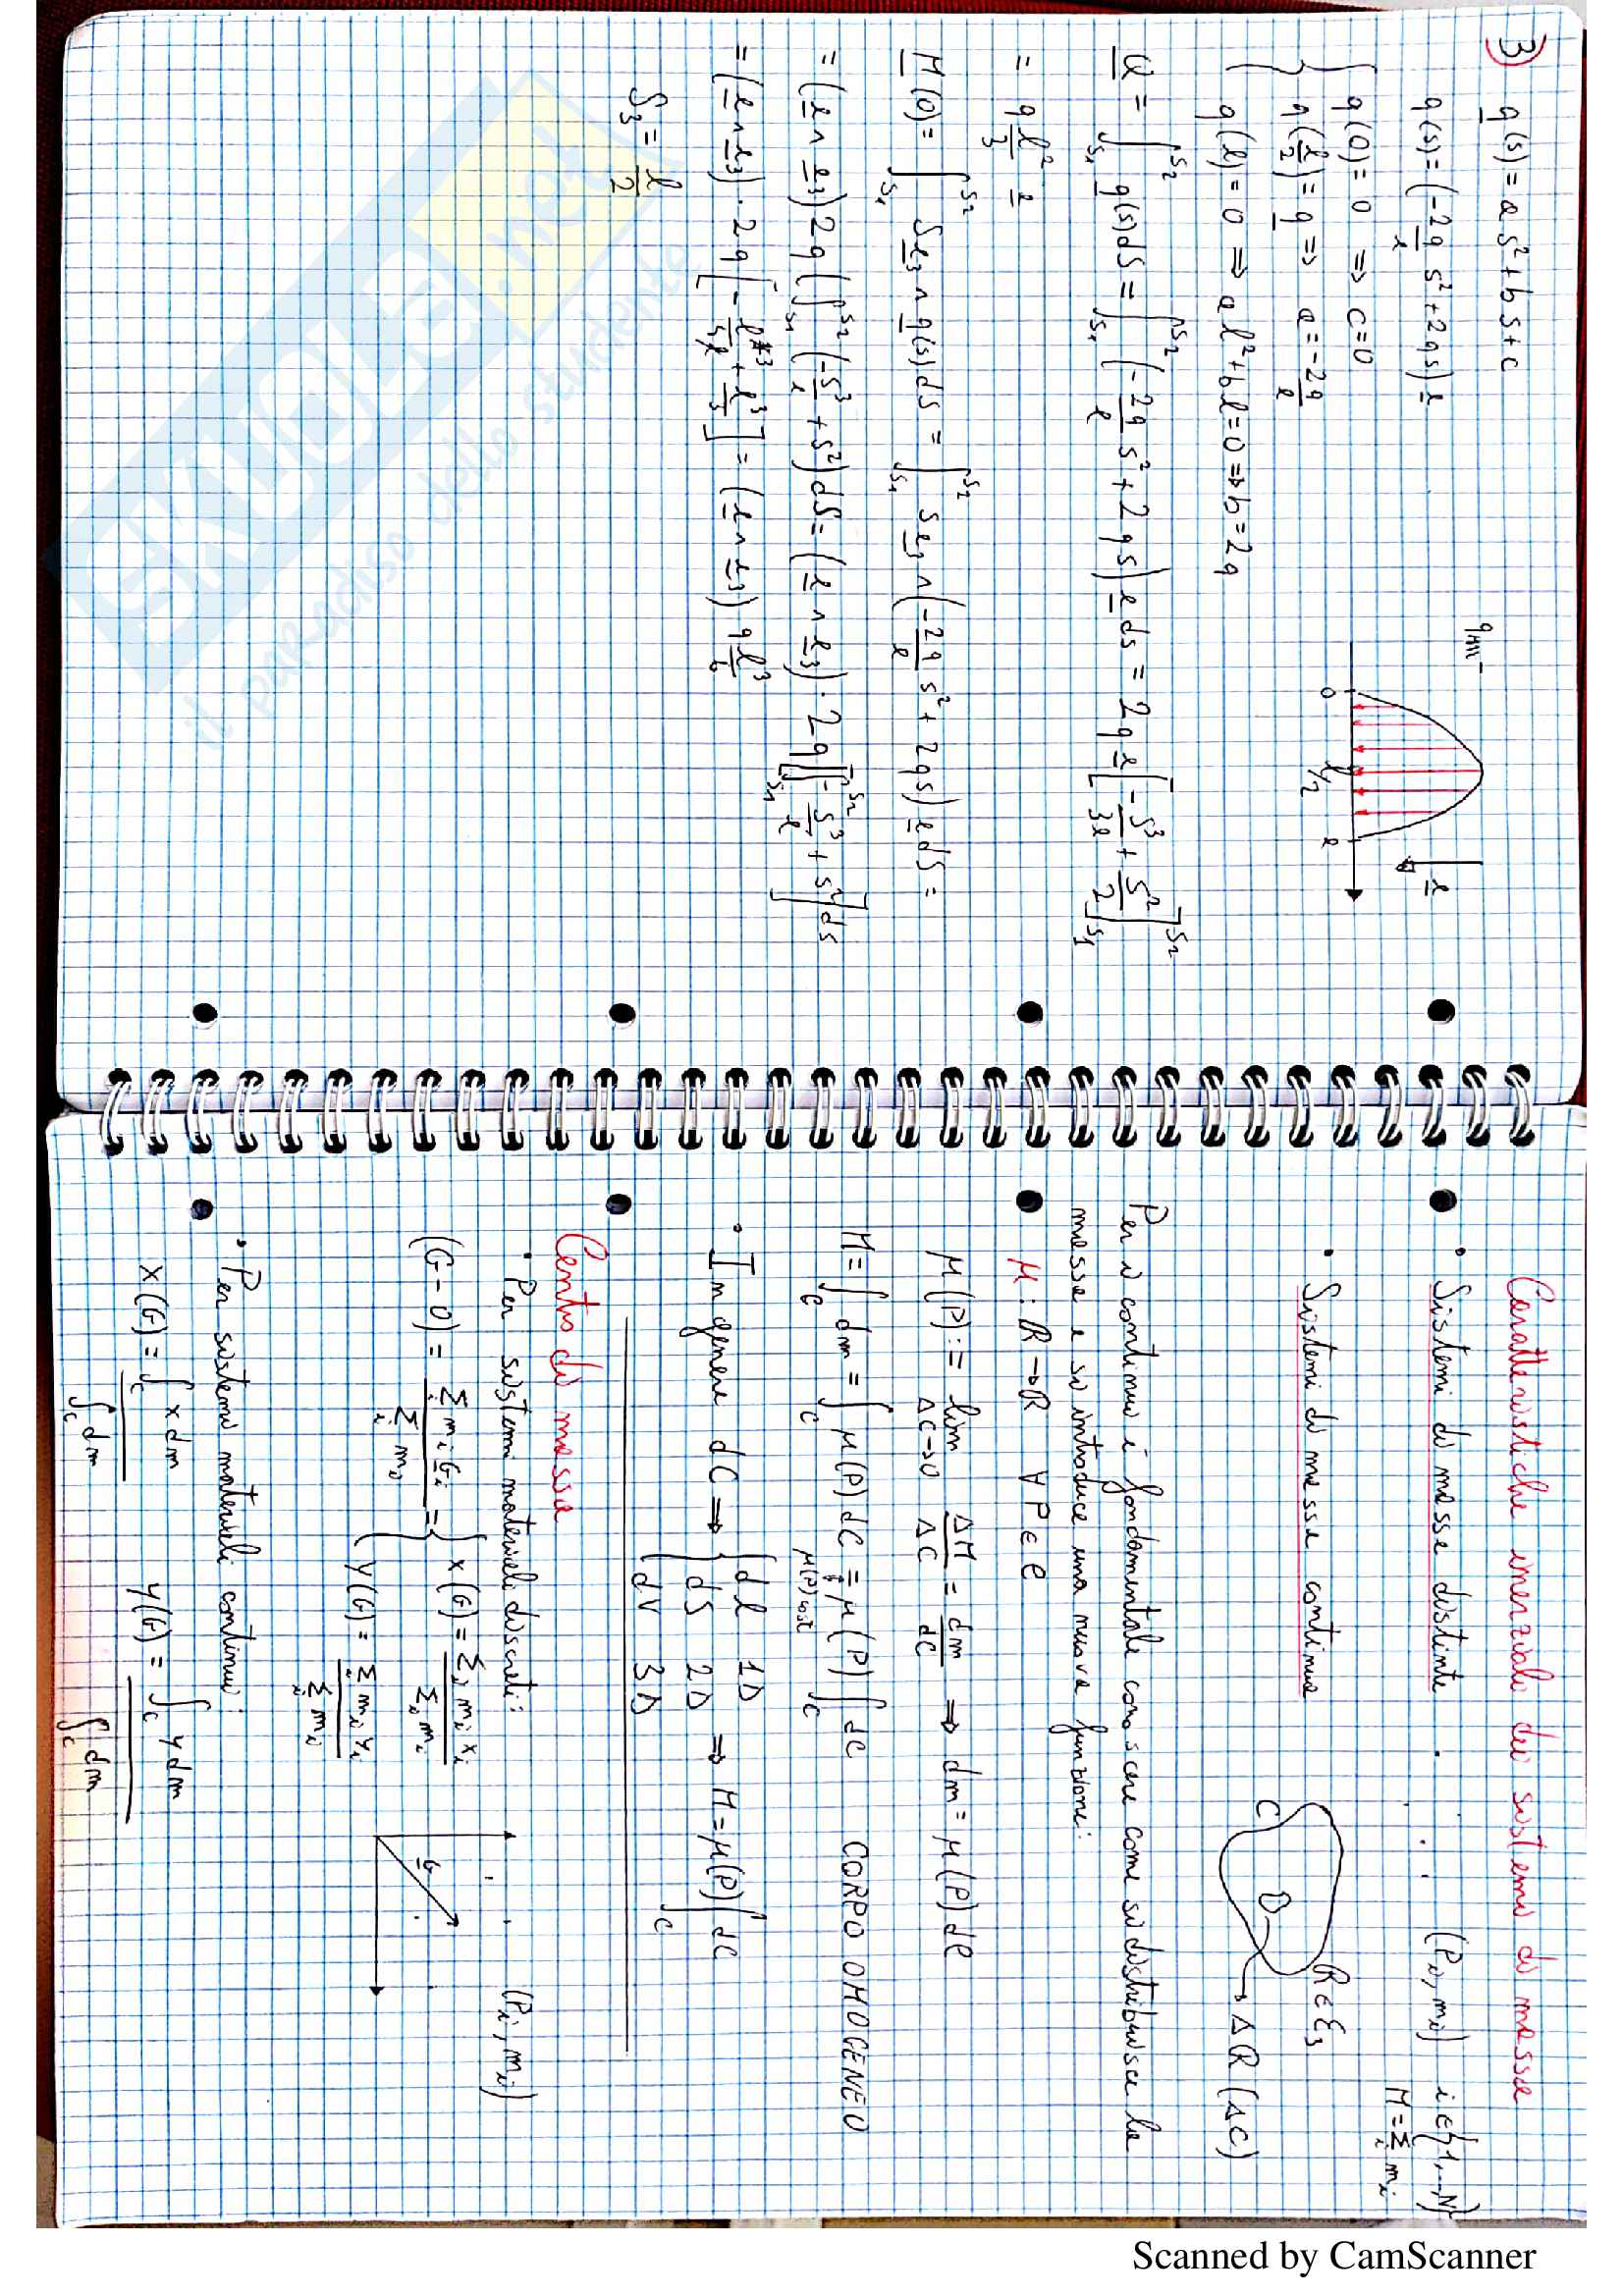 3) q(s) = as² + bs + c
q(s) = (-2q/l s² + 2qs) e
q(0) = 0 ⇒ c = 0
q(l/2) = q ⇒ a = -2q/l
q(l) = 0 ⇒ al² + bl = 0 ⇒ b = 2q
0 l/2 l e
Q = ∫_{s1}^{s2} q(s)dS = ∫_{s1}^{s2} (-2q/l s² + 2qs) e ds = 2q e [-s³/3l + s²/2]_{s1}^{s2}
= q l²/3 e
M(0) = ∫_{s1}^{s2} S e₃ ∧ q(s)ds = ∫_{s1}^{s2} s e₃ ∧ (-2q/l s² + 2qs) e dS =
= (e ∧ e₃) 2q (∫_{s1}^{s2} (-s³/l + s²) dS = (e ∧ e₃) · 2q [∫_{s1}^{s2} -s³/l + s²] ds
= (e ∧ e₃) · 2q [-l³/4 + l³/3] = (e ∧ e₃) q l³/6
S₃ = l/2
Caratteristiche inerziali dei sistemi di masse
• Sistemi di masse distinte (Pi, mi) i ∈ {1,..,N}
M = Σi mi
• Sistemi di masse continue
C R ∈ ℰ₃
ΔR (ΔC)
Per i continui è fondamentale conoscere come si distribuisce la
massa e si introduce una nuova funzione:
μ: R → R ∀ P ∈ C
μ(P) := lim_{ΔC→0} ΔM/ΔC = dm/dC ⇒ dm = μ(P) dC
M = ∫_C dm = ∫_C μ(P) dC = μ(P) ∫_C dC CORPO OMOGENEO
μ(P) cost
• In genere dC ⇒ { dl 1D
dS 2D ⇒ M = μ(P) ∫_C dC
dV 3D
Centro di massa
• Per sistemi materiali discreti: (Pi, mi)
(G - O) = Σi mi Gi / Σi mi = { x(G) = Σi mi xi / Σi mi
y(G) = Σi mi yi / Σi mi
G
• Per sistemi materiali continui:
x(G) = ∫_C x dm / ∫_C dm y(G) = ∫_C y dm / ∫_C dm
SKUOLA.net
il paradiso dello studente
Scanned by CamScanner